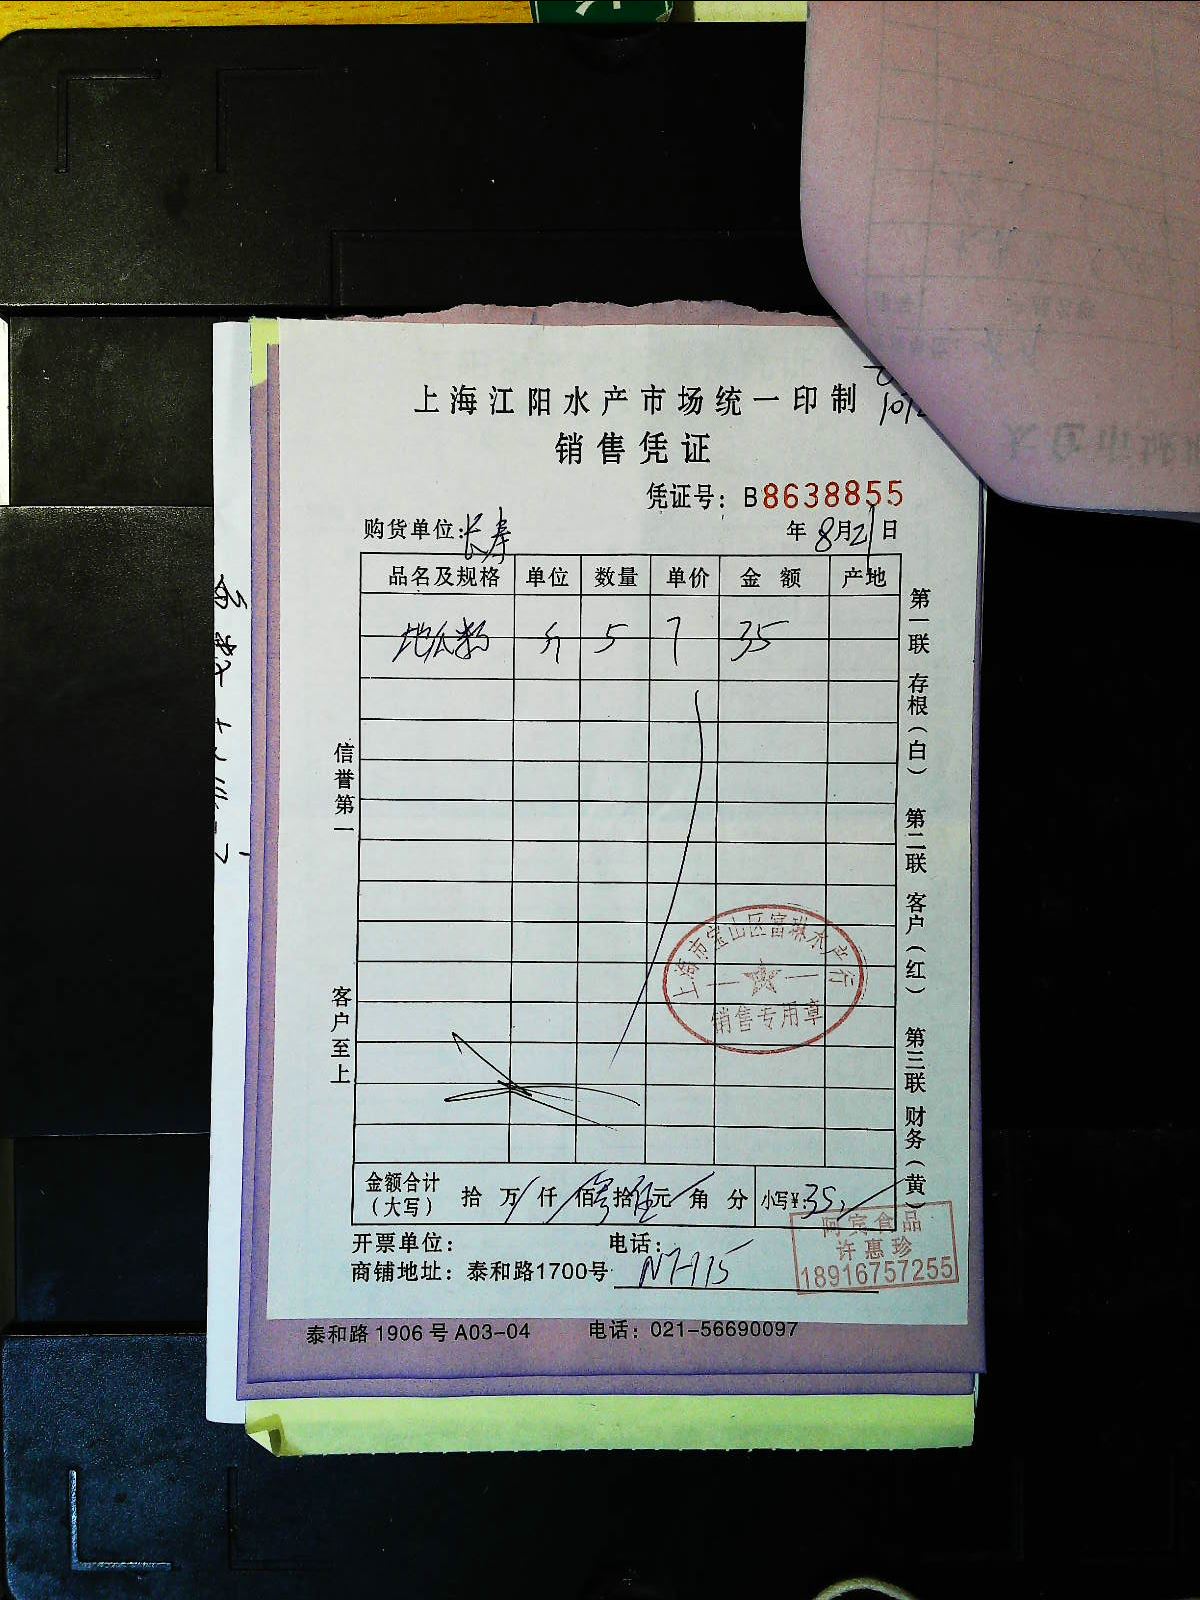 上海江阳水产市场统一印制
销售凭证
凭证号：B8638855
购货单位：长寿 年 8月21日
品名及规格 单位 数量 单价 金额 产地
地瓜粉 斤 5 7 35
信誉第一
客户至上
第一联 存根（白） 第二联 客户（红） 第三联 财务（黄）
上海市宝山区富琳水产行
销售专用章
金额合计（大写） 拾 万 仟 佰 叁拾伍元 角 分 小写¥:35
阿宾食品
许惠珍
18916757255
开票单位： 电话：
商铺地址：泰和路1700号 N7-115
泰和路1906号A03-04 电话：021-56690097